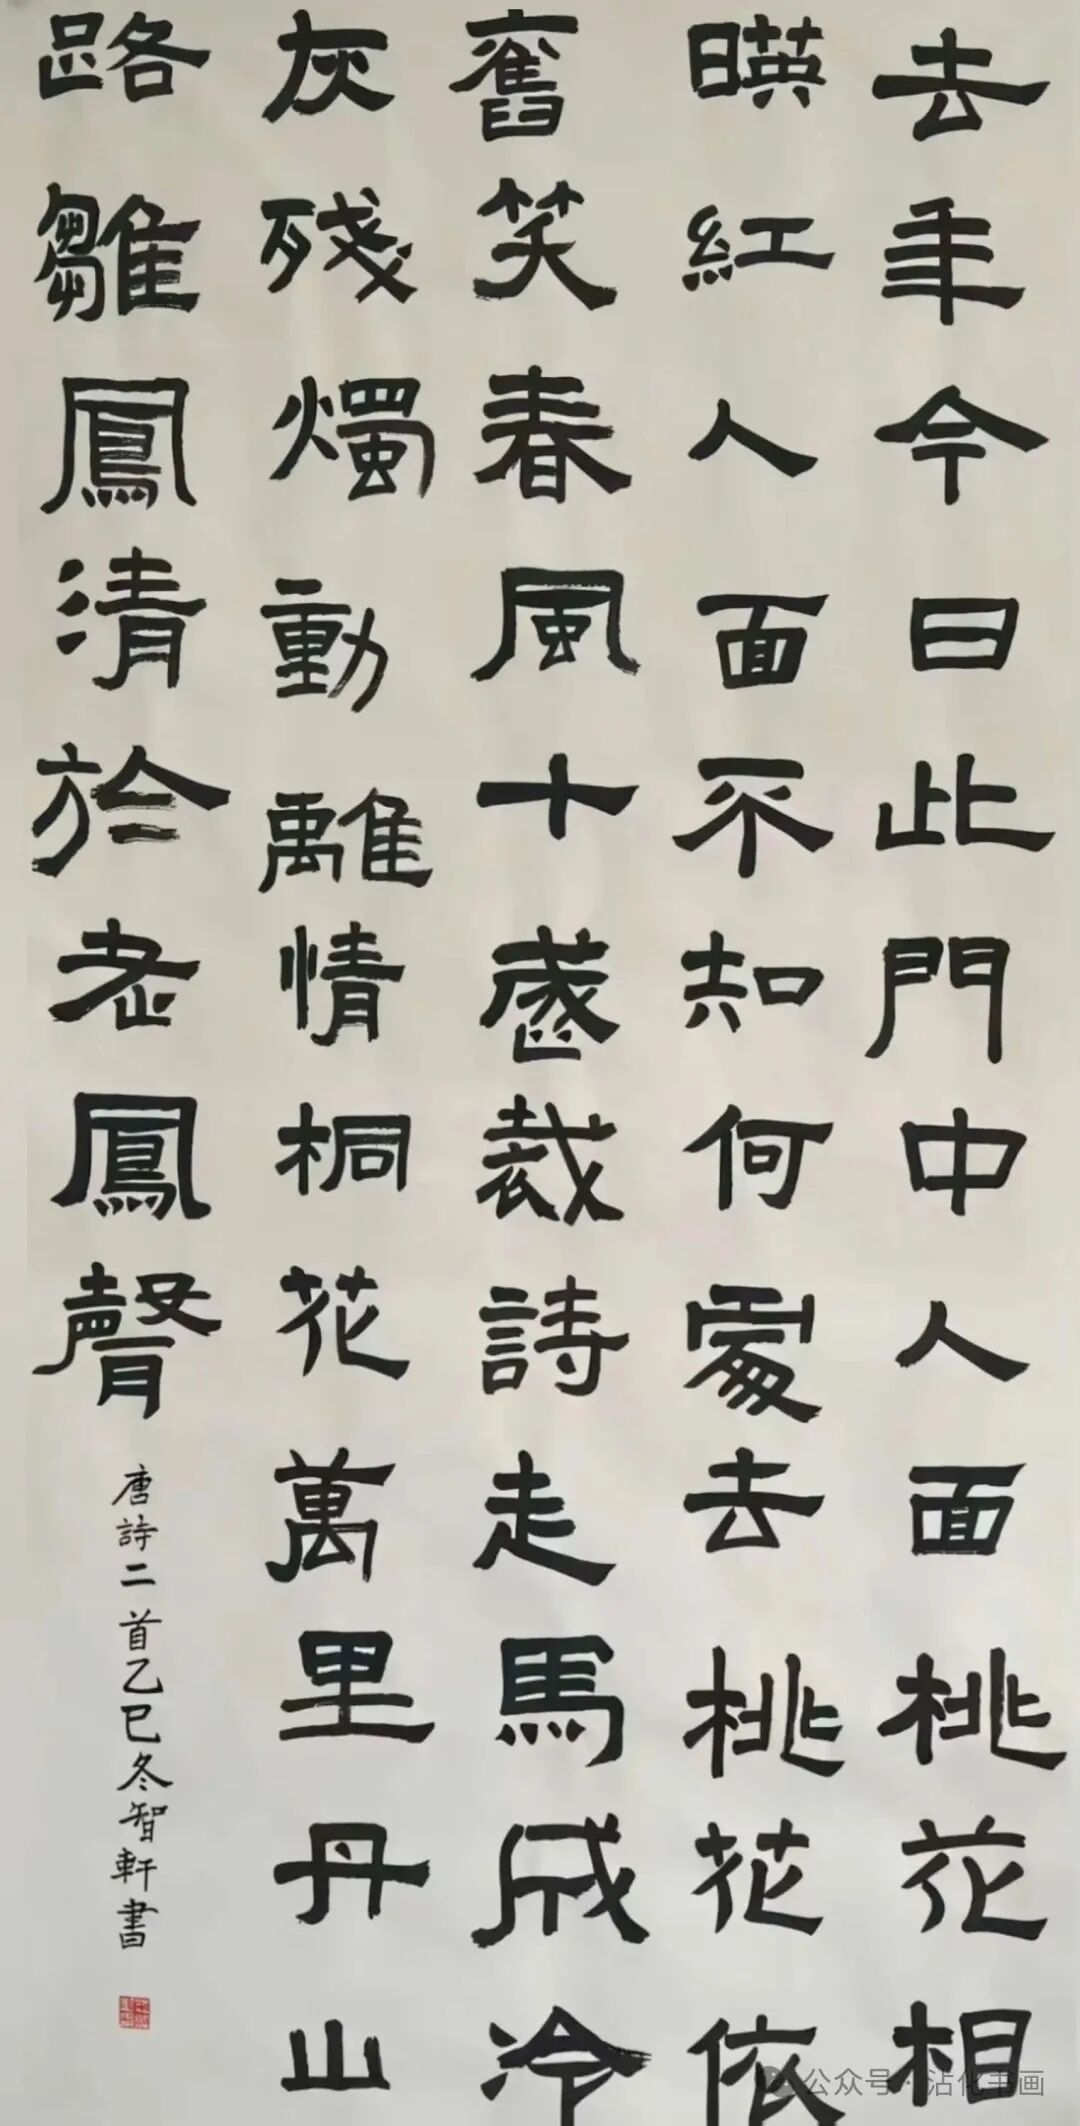 去年今日此門中人面桃花相
暎紅人面不知何處去桃花依
舊笑春風十歲裁詩走馬成冷
灰殘燭動離情桐花萬里丹山
路雛鳳清於老鳳聲
唐詩二首乙巳冬智軒書
公众号·沾化书画